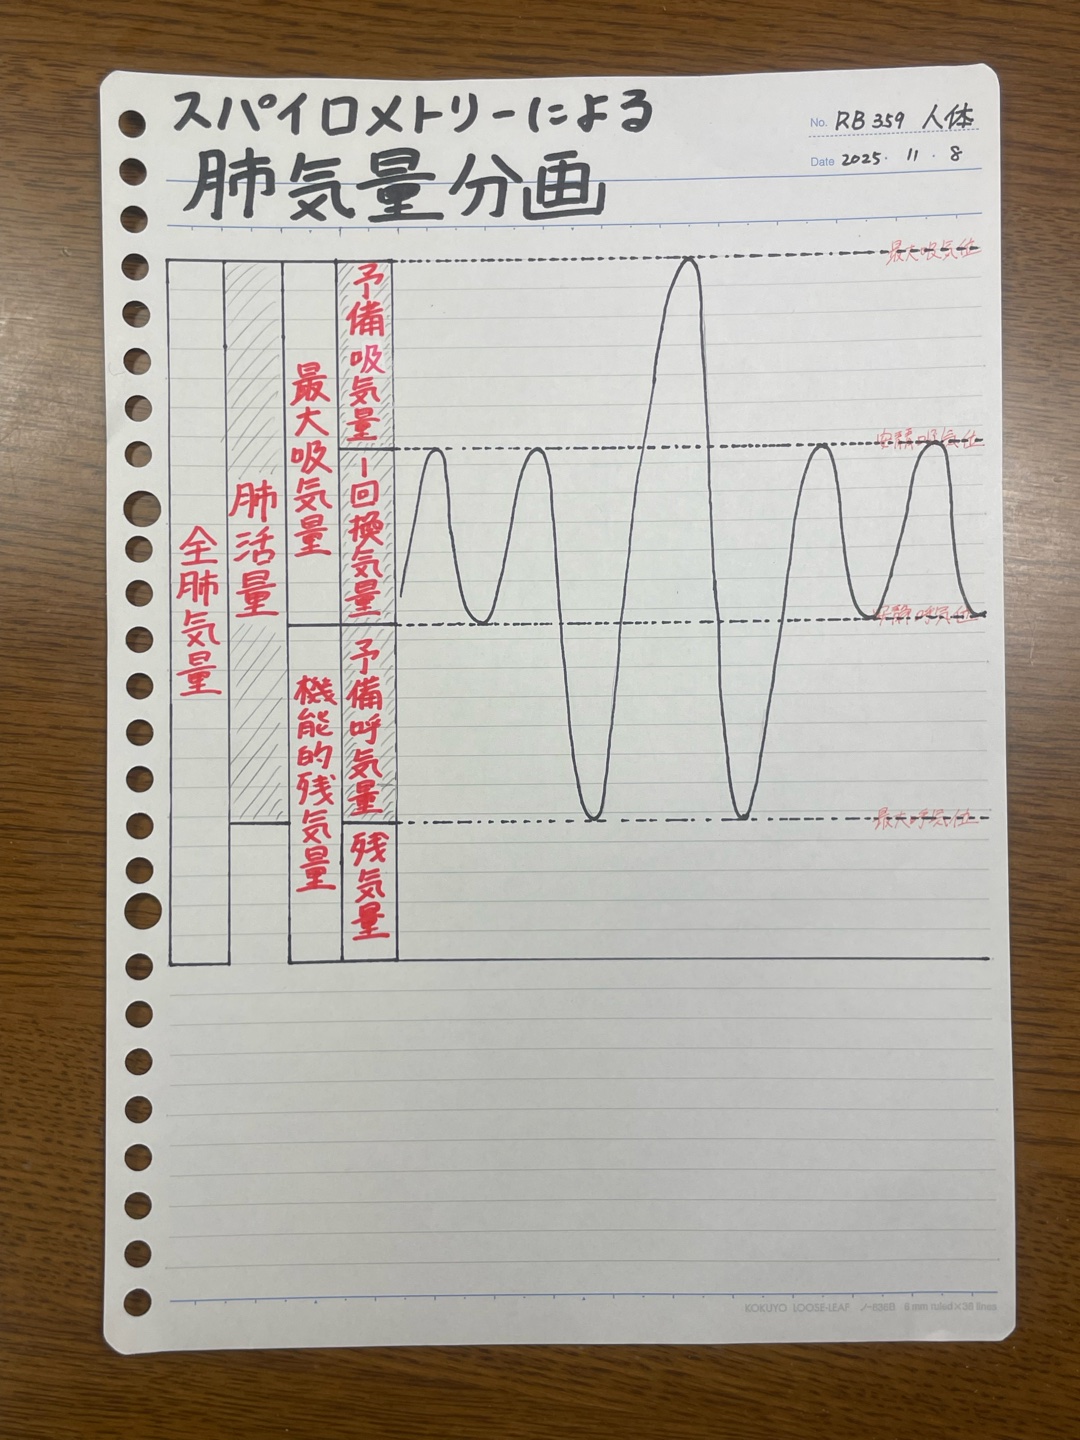 スパイロメトリーによる
肺気量分画
No. RB 359 人体
Date 2025. 11. 8
全肺気量
肺活量
最大吸気量
機能的残気量
予備吸気量
1回換気量
予備呼気量
残気量
最大吸気位
安静吸気位
安静呼気位
最大呼気位
KOKUYO LOOSE-LEAF ノ-836B 6 mm ruled×36 lines